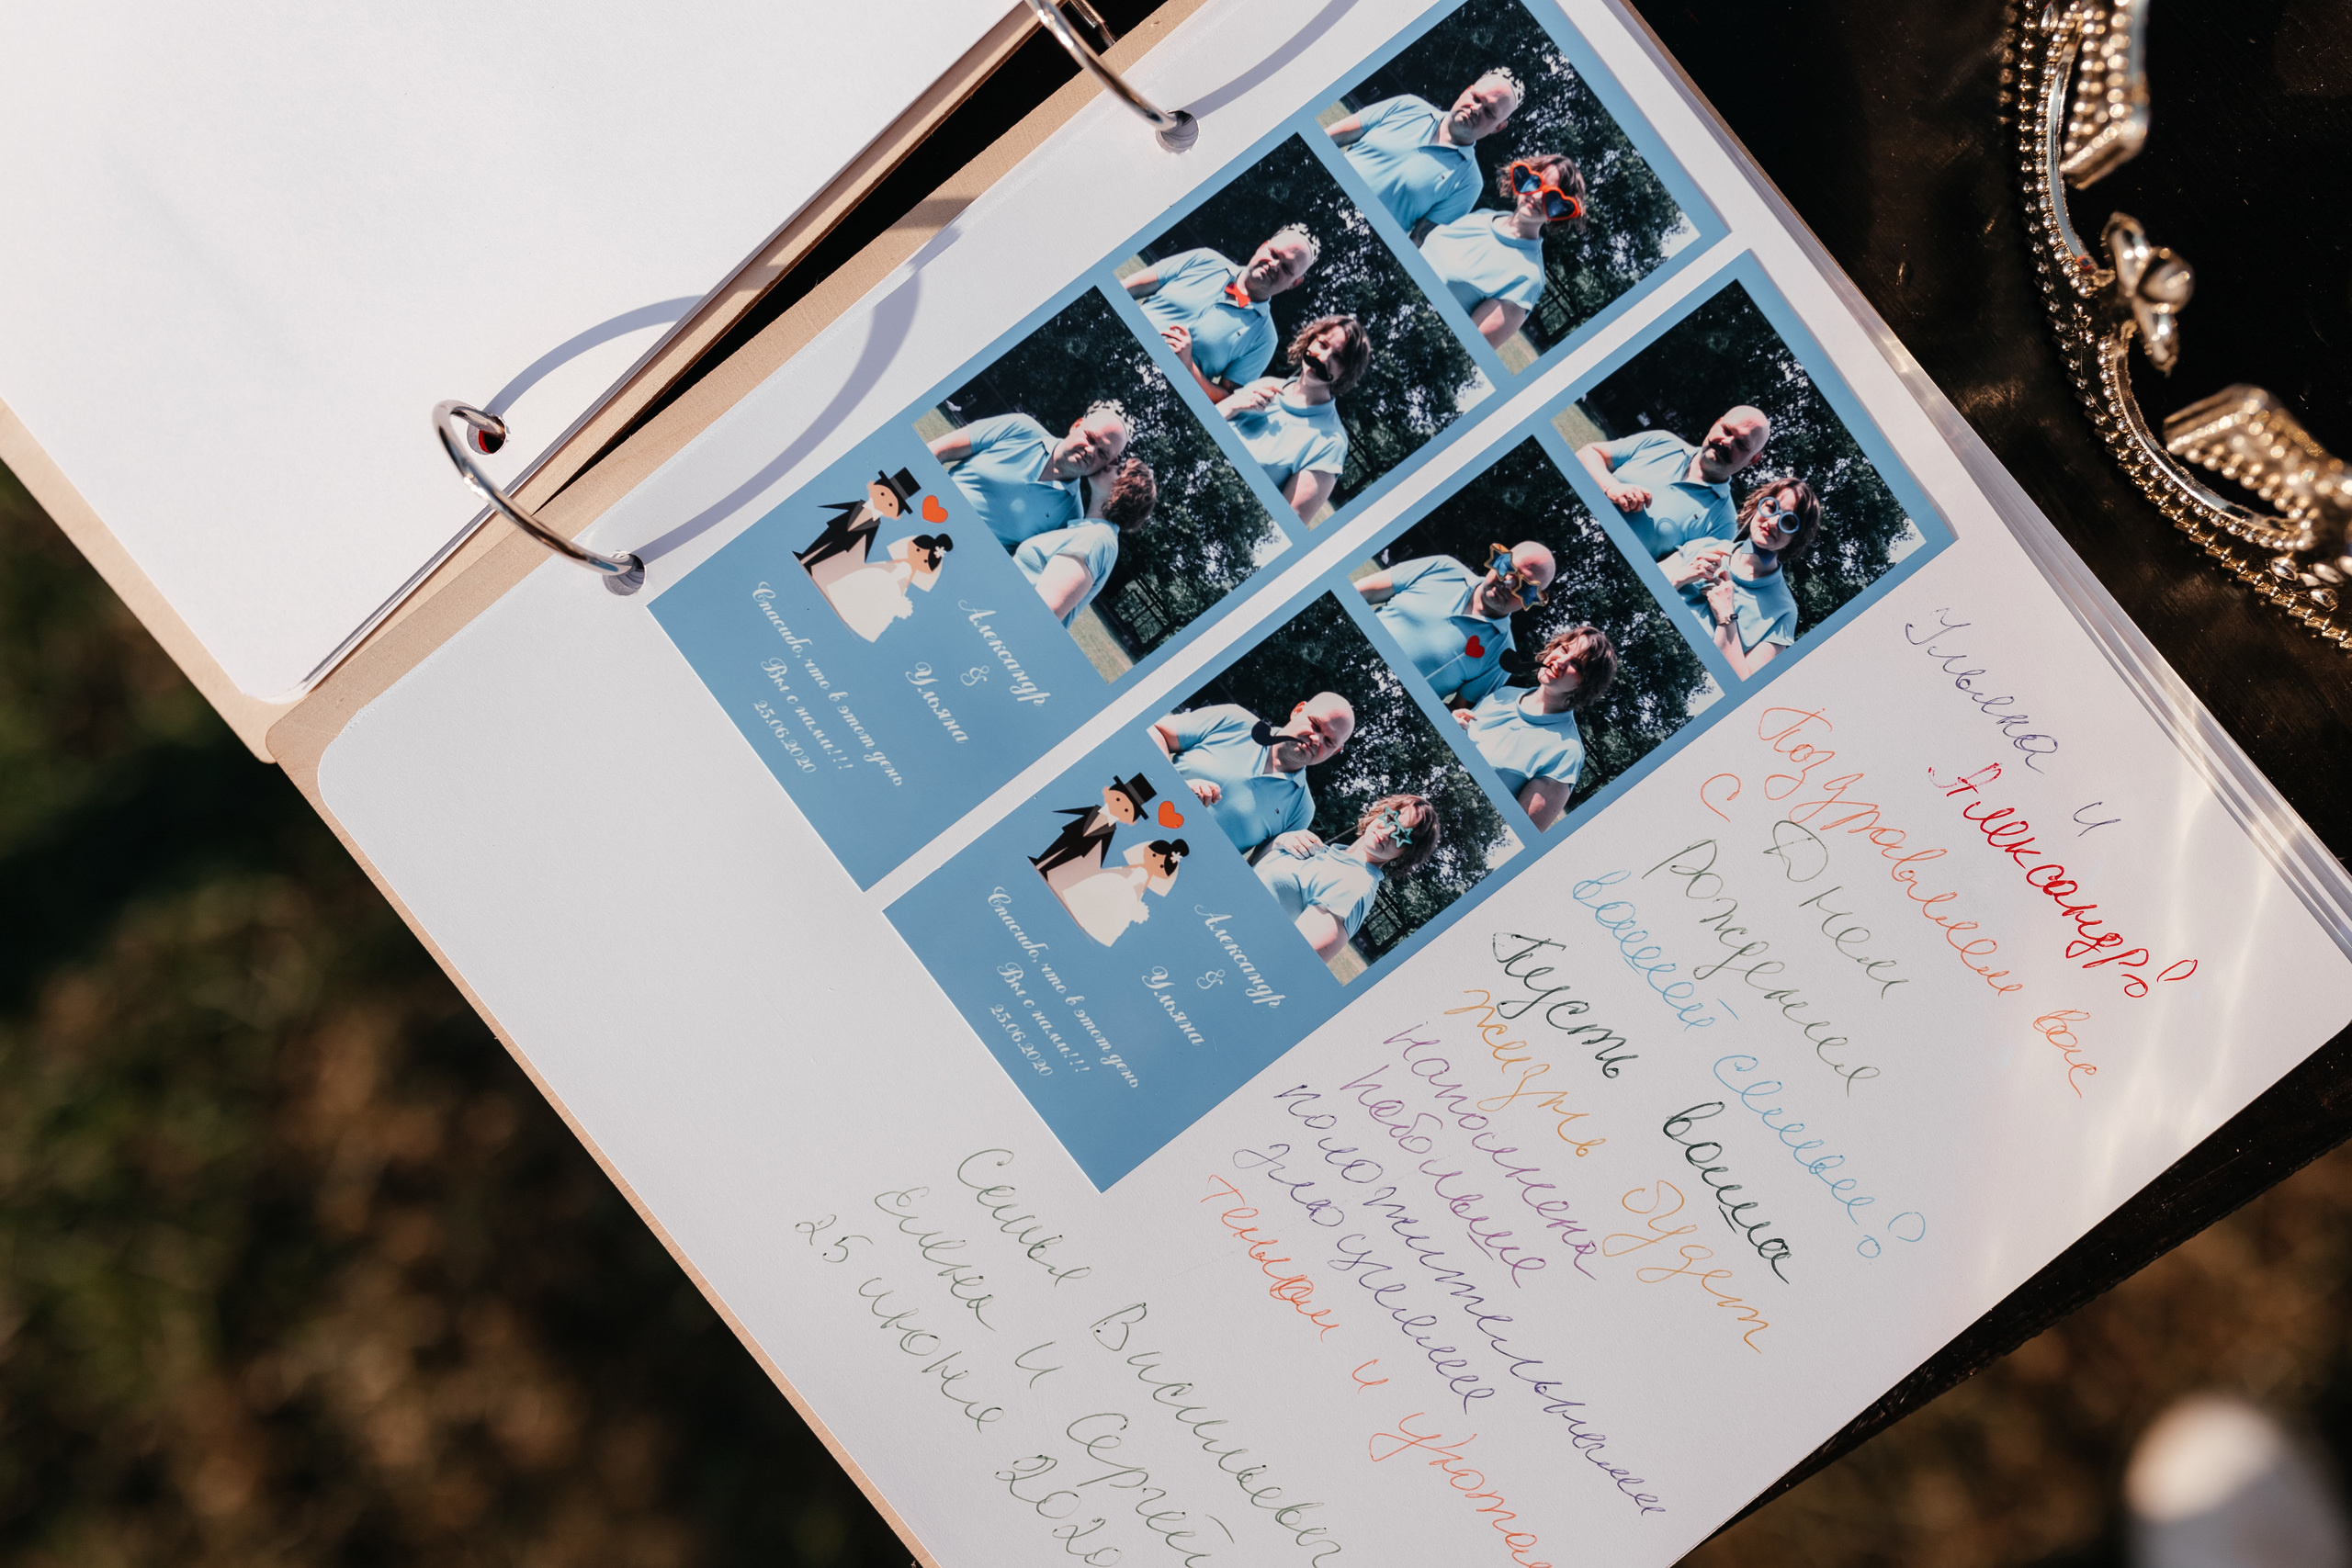 Александр
&
Ульяна
Спасибо, что в этот день
Вы с нами!!!
25.06.2020
Александр
&
Ульяна
Спасибо, что в этот день
Вы с нами!!!
25.06.2020
Ульяна и
Александр!
Поздравляем вас
с Днём
рождения
вашей семьи!
Пусть ваша
жизнь будет
наполнена
наболь��е
положительными
эмоциями
теплом и
Семья Васильевы
Елена и Сергей
25 июня 2020